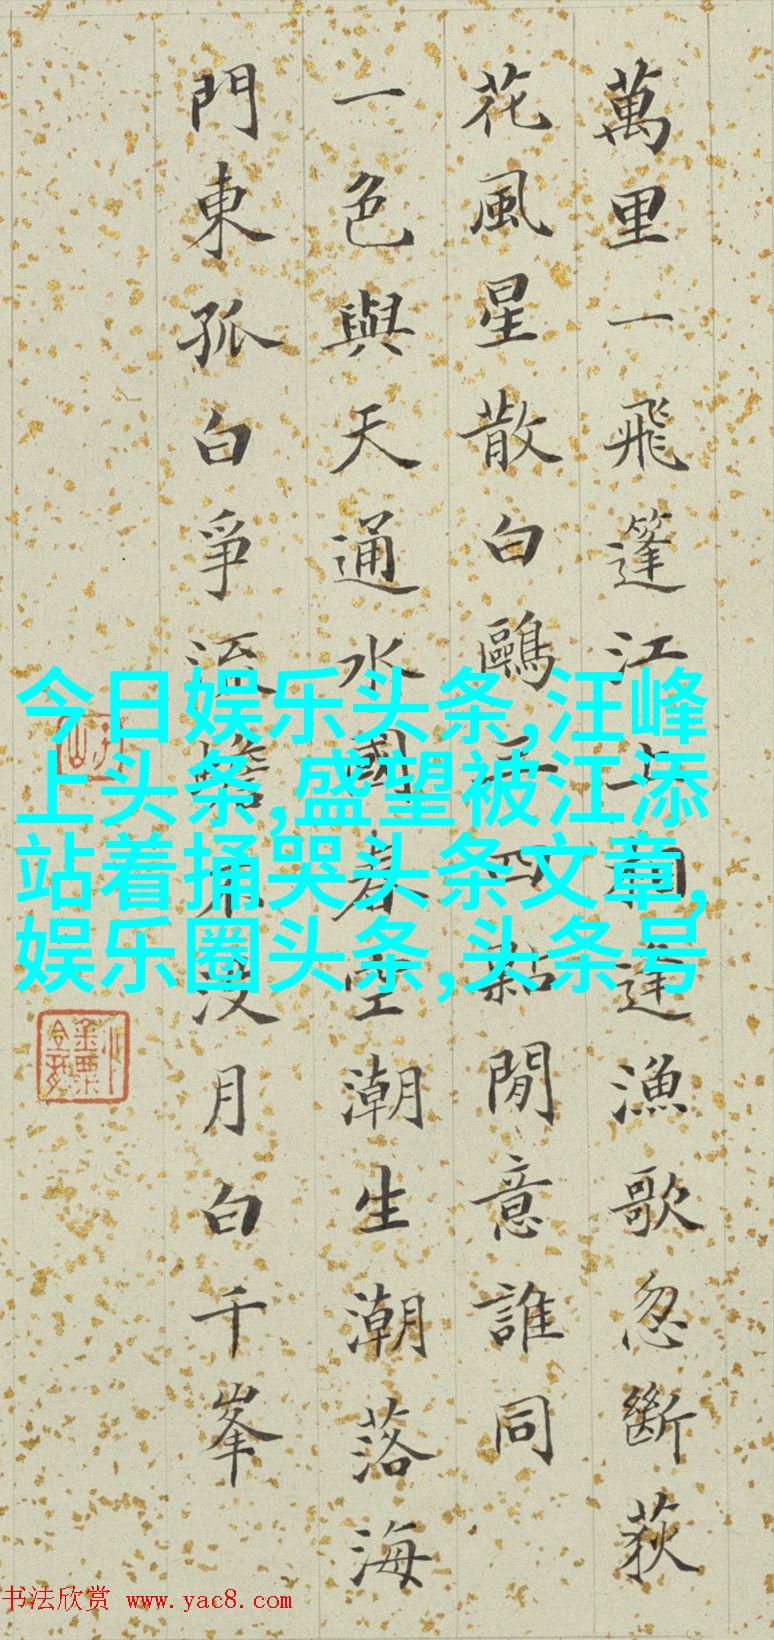 萬里一飛篷江上相逢漁歌忽斷荻
花風星散白鷗四點閒意誰同
一色與天通水國春空潮生潮落海
門東孤白爭流蟾不沒月白千峯
今日娱乐头条,汪峰
上头条,盛望被江添
站着捅哭头条文章,
娱乐圈头条,头条号
书法欣赏 www.yac8.com